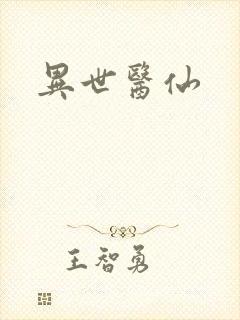 異世醫仙
王智勇